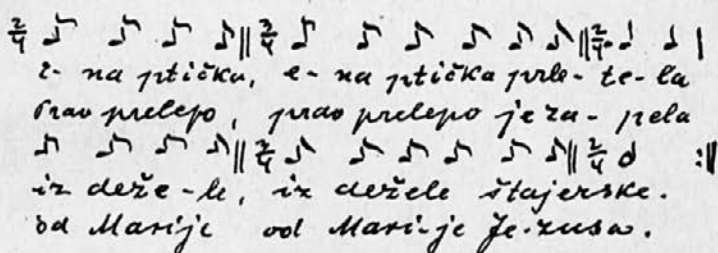 2/4 3/4 2/4
e- na ptička, e- na ptička prle- te- la
Prav prelepo, prav prelepo je za- pela
3/4 2/4
iz deže- le, iz dežele štajerske.
od Marije od Mari- je Je- zusa.